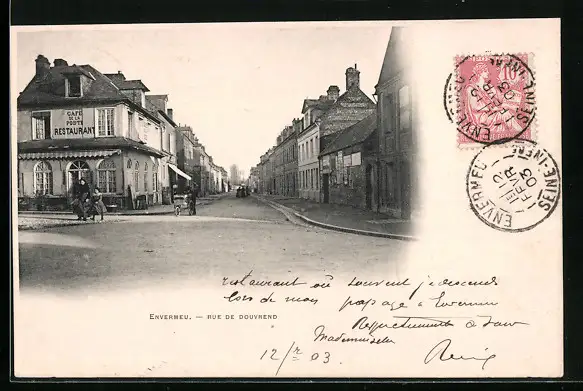 CAFÉ
DE LA
POSTE
RESTAURANT
10
ENVERMEU
12
FEVR
03
SEINE INFRE
ENVERMEU
1E
12
FEVR
03
SEINE INFRE
restaurant où souvent je descends
lors de mon passage à Envermeu
ENVERMEU. — RUE DE DOUVREND
Respectueusement à vous
Mademoiselle
12/2 03